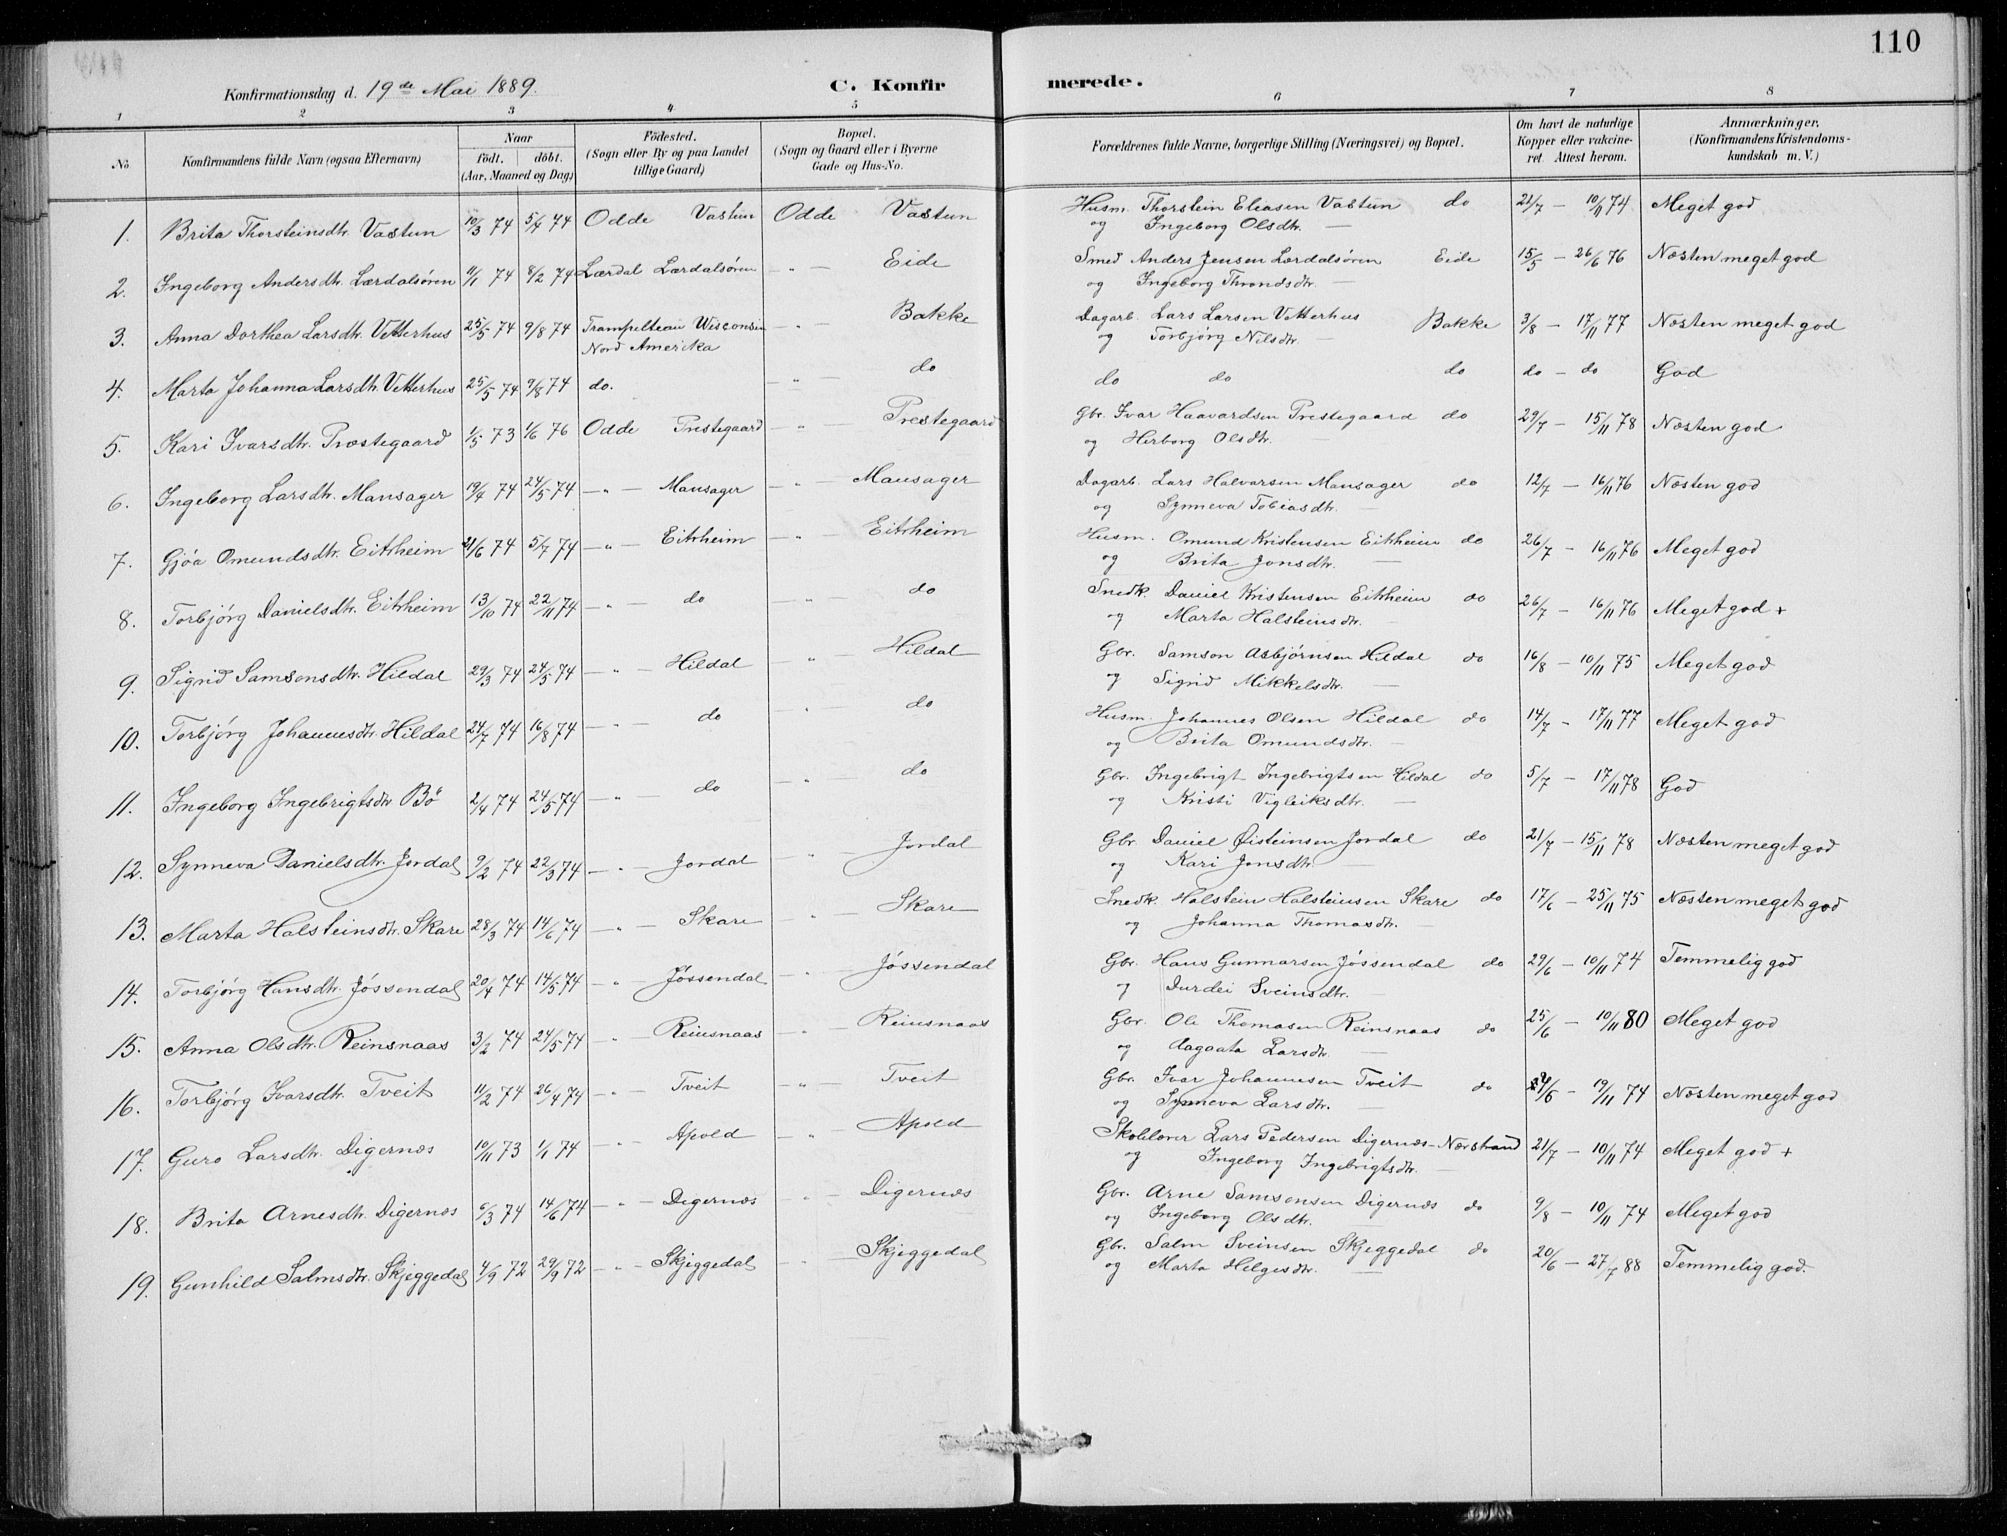 110
Konfirmationsdag d. 19de Mai 1889.
C. Konfirmerede.
1 2 3 4 5 6 7 8
No
Konfirmandens fulde Navn (ogsaa Efternavn)
Naar födt. döbt. (Aar, Maaned og Dag)
Födested. (Sogn eller By og paa Landet tillige Gaard)
Bopæl. (Sogn og Gaard eller i Byerne Gade og Hus-No.
Forældrenes fulde Navne, borgerlige Stilling (Næringsvei) og Bopæl.
Om havt de naturlige Kopper eller vakcineret Attest herom.
Anmærkninger. (Konfirmandens Kristendomskundskab m. V.)
1. Brita Thorsteinsdtr. Vastun 10/3 74 5/4 74 Odde Vastun Odde Vastun Husm. Thorstein Eleasen Vastun do 21/7 — 10/11 74 Meget god
og Ingeborg Olsdtr. —
2. Ingeborg Andersdtr. Lærdalsören 11/1 74 8/2 74 Lærdal Lærdalsören — " — Eide Smed Anders Jensen Lærdalsören Eide 15/5 — 26/6 76 Næsten meget god
og Ingeborg Throndsdtr. —
3. Anna Dorthea Larsdtr. Vetterhus 25/5 74 9/8 74 Trampelteau Wisconsin — " — Bakke Dagarb. Lars Larsen Vetterhus Bakke 3/8 — 17/11 77 Næsten meget god
Nord Amerika og Torbjørg Nilsdtr. —
4. Marta Johanna Larsdtr. Vetterhus 25/5 74 9/8 74 do. — " — do do do do do — do God
5. Kari Ivarsdtr. Præstegaard 1/5 73 1/6 76 Odde Prestegaard — " — Prestegaard Gbr. Ivar Haavardsen Prestegaard do 29/7 — 15/11 78 Næsten god
og Herborg Olsdtr. —
6. Ingeborg Larsdtr. Mansager 19/4 74 24/5 74 — " — Mansager — " — Mansager Dagarb. Lars Halvarsen Mansager do 12/7 — 16/11 76 Næsten god
og Synneva Tobiasdtr. —
7. Gjøa Omundsdtr. Eitrheim 21/6 74 5/7 74 — " — Eitrheim — " — Eitrheim Husm. Omund Kristensen Eitrheim do 26/7 — 16/11 76 Meget god
og Brita Jonsdtr. —
8. Torbjörg Danielsdtr. Eitrheim 13/10 74 22/11 74 — " — do — " — do Snedk. Daniel Kristensen Eitrheim do 26/7 — 16/11 76 Meget god +
og Marta Halsteinsdtr. —
9. Sigrid Samsonsdtr. Hildal 29/3 74 24/5 74 — " — Hildal " Hildal Gbr. Samson Asbjørnsen Hildal do 16/8 — 10/11 75 Meget god
og Sigrid Mikkelsdtr. —
10. Torbjörg Johannesdtr. Hildal 24/7 74 16/8 74 — " — do " do Husm. Johannes Olsen Hildal do 14/7 — 17/11 77 Meget god
og Brita Omundsdtr. —
11. Ingeborg Ingebrigtsdtr. Bö 2/4 74 24/5 74 — " — do — " — do Gbr. Ingebrigt Ingebrigtsen Hildal do 5/7 — 17/11 78 God
og Kristi Vigleiksdtr. —
12. Synneva Danielsdtr. Jordal 9/2 74 22/3 74 — " — Jordal — " — Jordal Gbr. Daniel Øisteinsen Jordal do 21/7 — 15/11 78 Næsten meget god
og Kari Jonsdtr. —
13. Marta Halsteinsdtr. Skare 28/3 74 14/6 74 — " — Skare — " — Skare Snedk. Halstein Halsteinsen Skare do 17/6 — 25/11 75 Næsten meget god
og Johanna Thomasdtr. —
14. Torbjörg Hansdtr. Jössendal 20/4 74 14/5 74 — " — Jössendal — " — Jössendal Gbr. Hans Gunnarsen Jössendal do 29/6 — 10/11 74 Temmelig god
og Durdei Sveinsdtr. —
15. Anna Olsdtr. Reinsnaas 3/2 74 24/5 74 — " — Reinsnaas — " — Reinsnaas Gbr. Ole Thomasen Reinsnaas do 25/6 — 10/11 80 Meget god
og Aagaata Larsdtr. —
16. Torbjörg Ivarsdtr. Tveit 11/2 74 26/4 74 — " — Tveit — " — Tveit Gbr. Ivar Johannesen Tveit do /6 — 19/11 74 Næsten meget god
og Synneva Larsdtr. —
17. Guro Larsdtr. Digernæs 10/11 73 1/1 74 — " — Apold — " — Apold Skolelærer Lars Pedersen Digernæs - Nærstrand 21/7 — 10/11 74 Meget god +
og Ingeborg Ingebrigtsdtr. —
18. Brita Arnesdtr. Digernæs 6/3 74 14/6 74 — " — Digernæs — " — Digernæs Gbr. Arne Samsonsen Digernæs do 9/8 — 10/11 74 Meget god
og Ingeborg Olsdtr. —
19. Gunhild Salmsdtr. Skjeggedal 4/9 72 29/9 72 — " — Skjeggedal — " — Skjeggedal Gbr. Salm Sveinsen Skjeggedal do 20/6 — 27/7 88 Temmelig god.
og Marta Helgesdtr. —